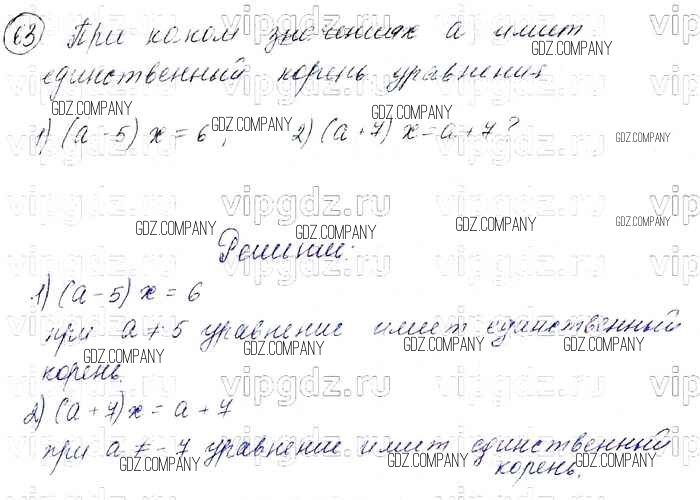 63 При каком значениях a имеет
единственный корень уравнения
1) (a - 5) x = 6, 2) (a + 7) x = a + 7?
Решение:
1) (a - 5) x = 6
при a ≠ 5 уравнение имеет единственный
корень.
2) (a + 7) x = a + 7
при a ≠ - 7 уравнение имеет единственный
корень.
vipgdz.ru
GDZ.COMPANY